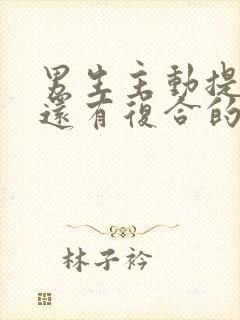 男生主動提
還有復合的
林子衿